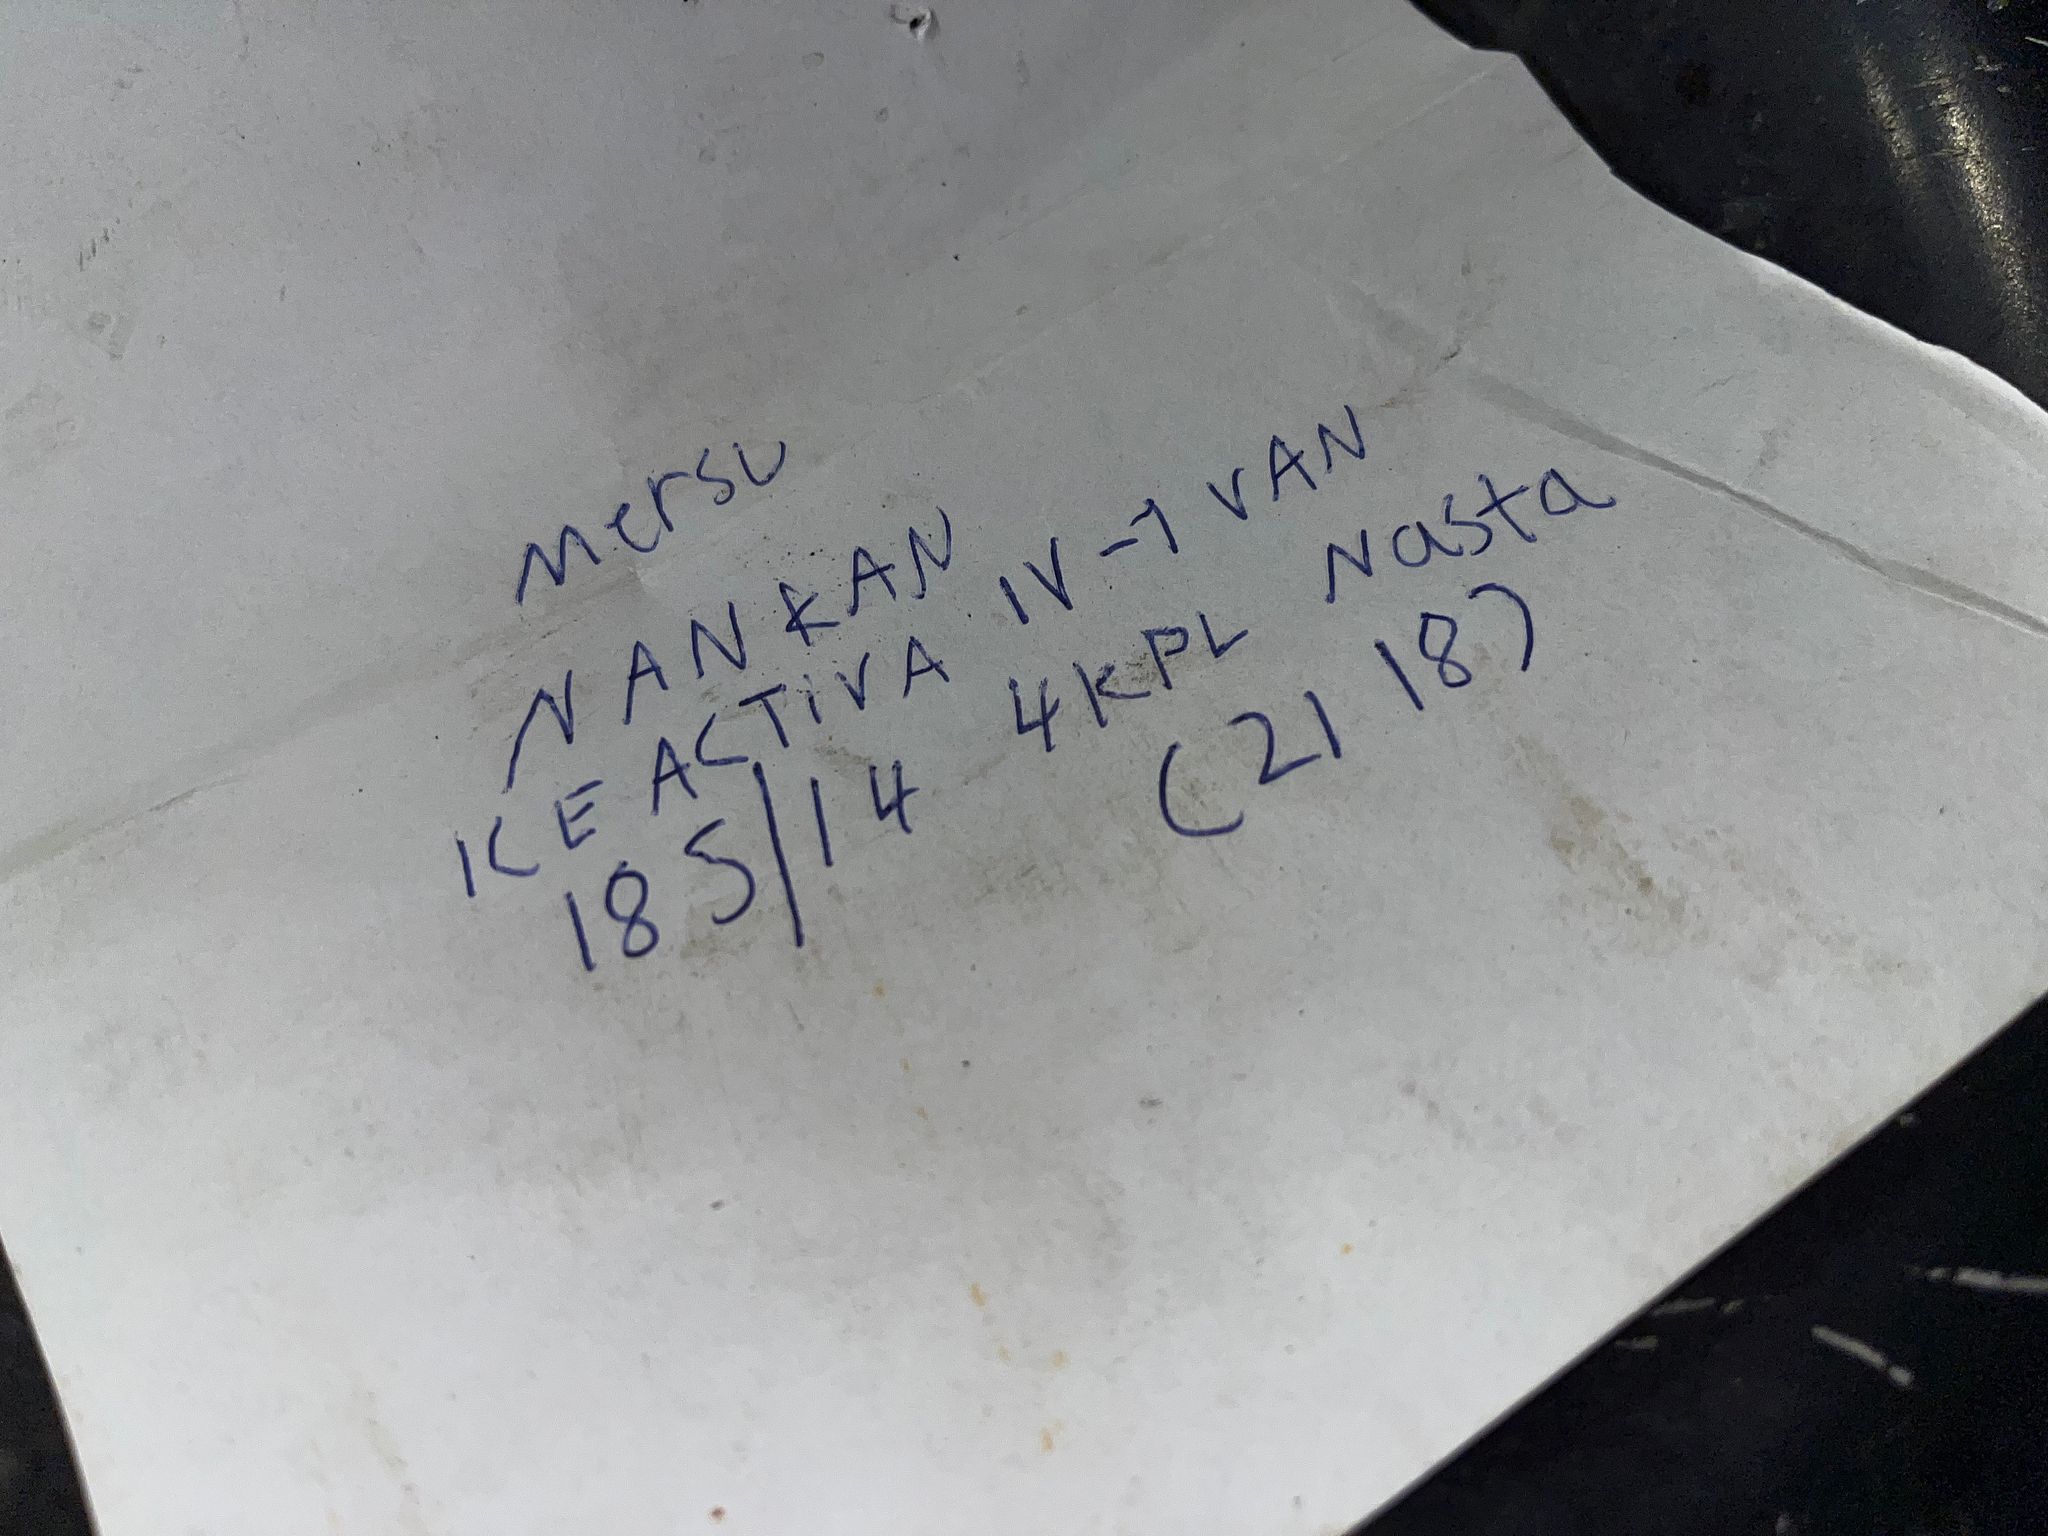 Mersu
NANKAN
ICE ACTIVA IV-1 VAN
185/14 4KPL Nasta
(2118)